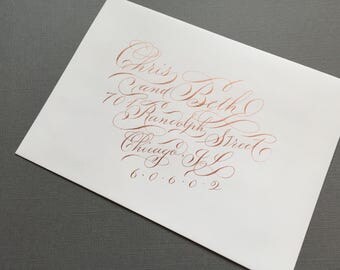 Chris
and Beth
701 Randolph Street
Chicago, IL
6·0·6·0·2